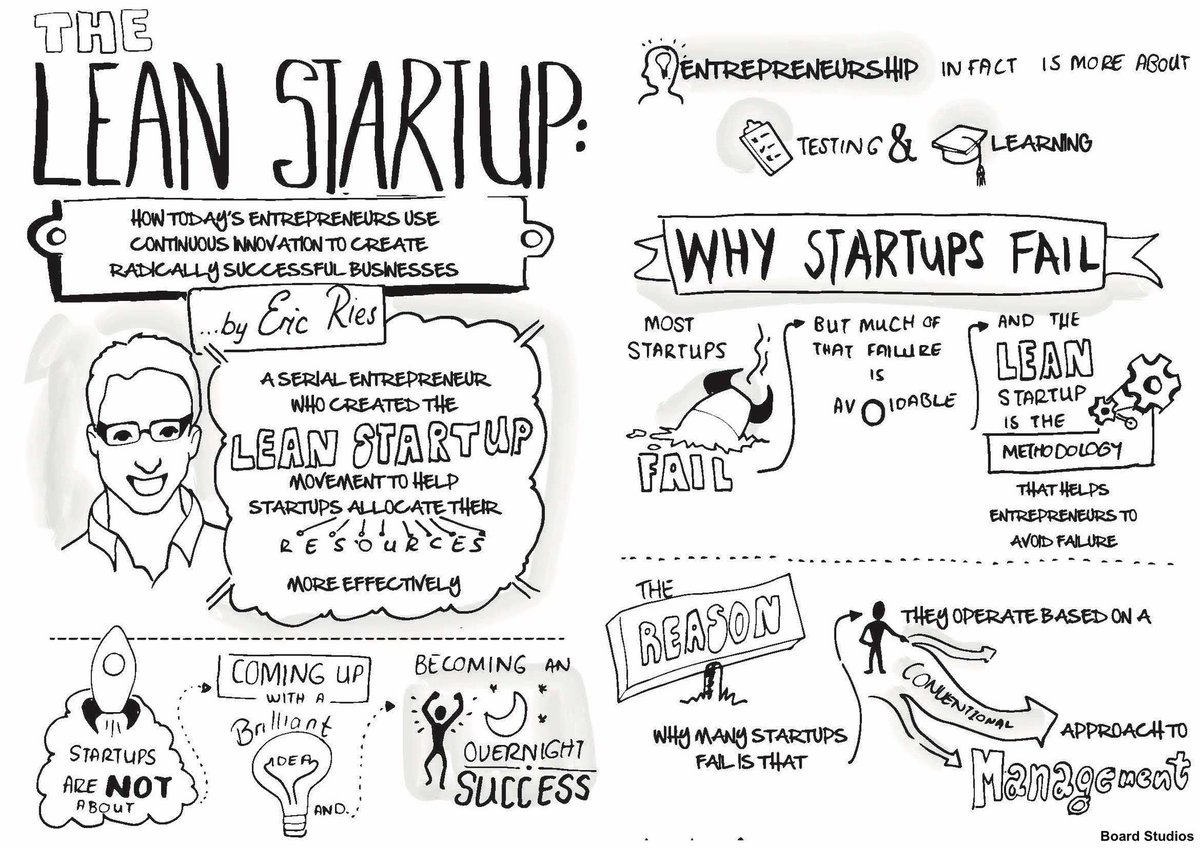 THE
LEAN STARTUP:
HOW TODAY'S ENTREPRENEURS USE
CONTINUOUS INNOVATION TO CREATE
RADICALLY SUCCESSFUL BUSINESSES
...by Eric Ries
A SERIAL ENTREPRENEUR
WHO CREATED THE
LEAN STARTUP
MOVEMENT TO HELP
STARTUPS ALLOCATE THEIR
RESOURCES
MORE EFFECTIVELY
STARTUPS
ARE NOT
ABOUT
COMING UP
WITH A
Brilliant
IDEA
AND..
BECOMING AN
OVERNIGHT
SUCCESS
ENTREPRENEURSHIP IN FACT IS MORE ABOUT
TESTING & LEARNING
WHY STARTUPS FAIL
MOST
STARTUPS
FAIL
BUT MUCH OF
THAT FAILURE
IS
AVOIDABLE
AND THE
LEAN
STARTUP
IS THE
METHODOLOGY
THAT HELPS
ENTREPRENEURS TO
AVOID FAILURE
THE
REASON
WHY MANY STARTUPS
FAIL IS THAT
THEY OPERATE BASED ON A
CONVENTIONAL
APPROACH TO
Management
Board Studios